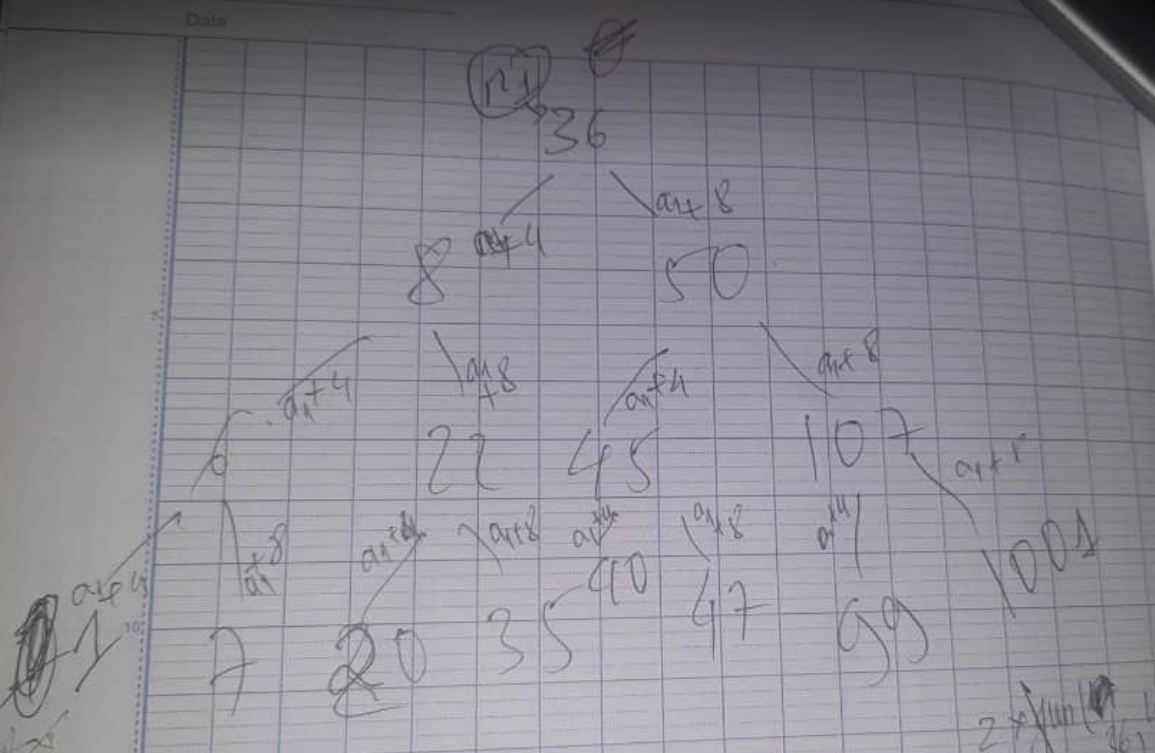 Date
36
a1+4 a1+8
8 50
a1+4 a1+8 a1+4 a1+8
6 22 45 107
a1+4 a1+8 a1+4 a1+8 a1+4 a1+8 a1+4
-1 7 20 35 40 47 99 1001
5
10